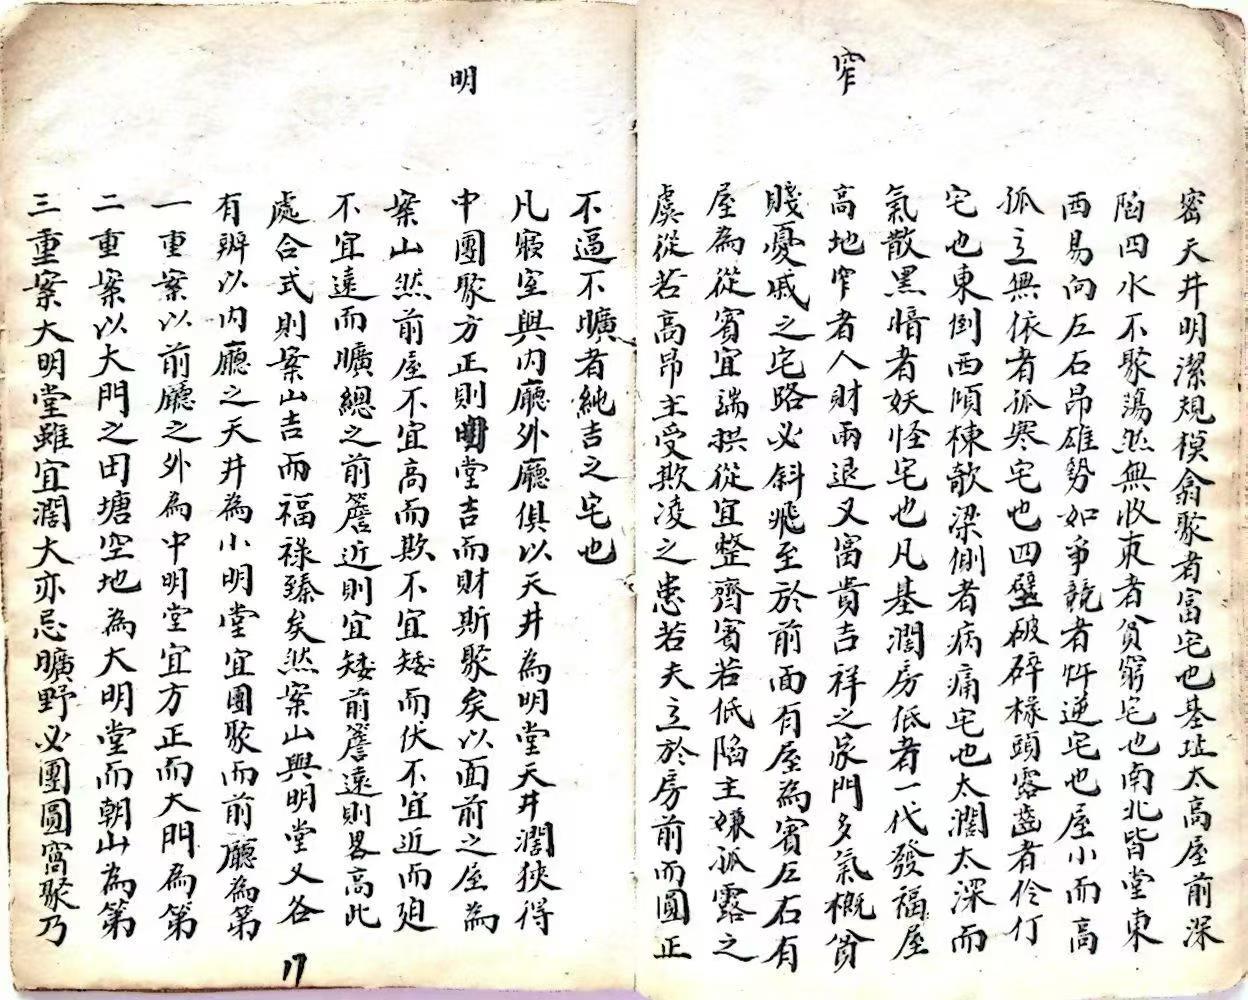 窄
密天井明潔規模翕聚者富宅也基址太高屋前深
陷四水不聚蕩然無收束者貧窮宅也南北皆堂東
西易向左右昂雄勢如爭競者忤逆宅也屋小而高
孤立無依者孤寒宅也四壁破碎椽頭露齒者伶仃
宅也東倒西傾棟欹梁側者病痛宅也太濶太深而
氣散黑暗者妖怪宅也凡基濶房低者一代發福屋
高地窄者人財兩退又富貴吉祥之家門多氣概貧
賤憂戚之宅路必斜飛至於前面有屋為賓左右有
屋為從賓宜端拱從宜整齊賓若低陷主嫌孤露之
虞從若高昂主受欺凌之患若夫立於房前而圓正
明
不逼不曠者純吉之宅也
凡寢室與內廳外廳俱以天井為明堂天井濶狹得
中團聚方正則明堂吉而財斯聚矣以面前之屋為
案山然前屋不宜高而欺不宜矮而伏不宜近而廹
不宜遠而曠總之前簷近則宜矮前簷遠則畧高此
處合式則案山吉而福祿臻矣然案山與明堂又各
有辨以内廳之天井為小明堂宜團聚而前廳為第
一重案以前廳之外為中明堂宜方正而大門為第
二重案以大門之田塘空地為大明堂而朝山為第
三重案大明堂雖宜濶大亦忌曠野必團圓窩聚乃
17